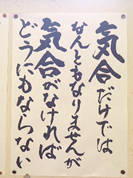 気合だけでは
なんともなりませんが
気合がなければ
どうにもならない